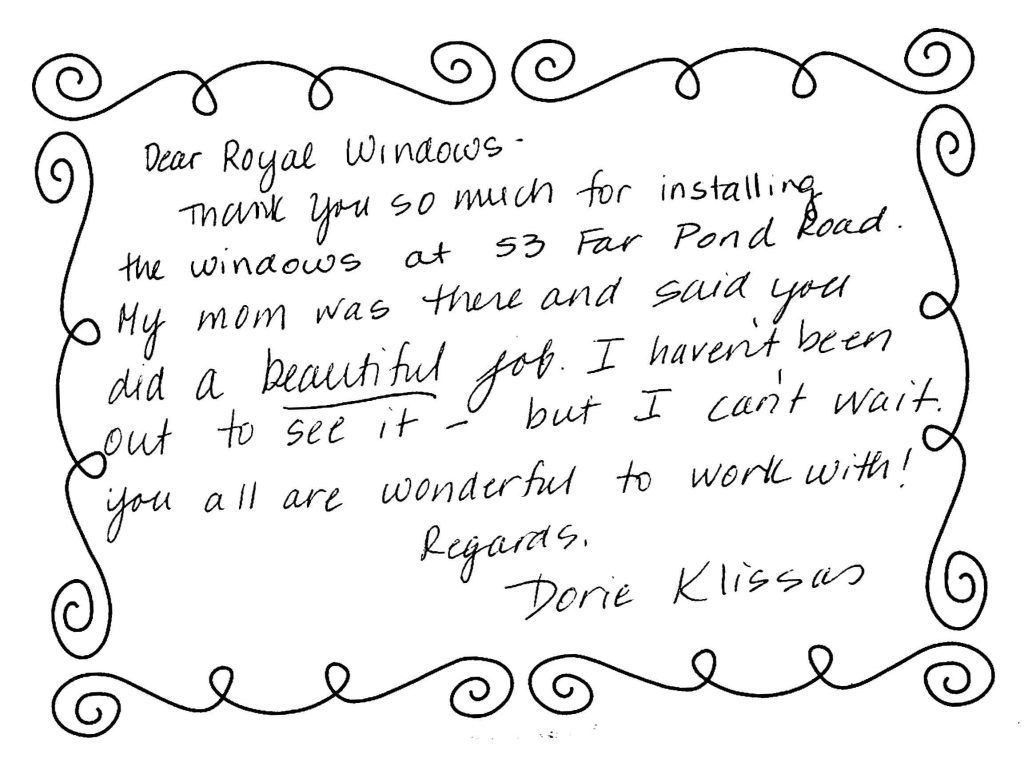 Dear Royal Windows -
Thank you so much for installing
the windows at 53 Far Pond Road.
My mom was there and said you
did a beautiful job. I haven't been
out to see it - but I can't wait.
you all are wonderful to work with!
Regards,
Dorie Klissas